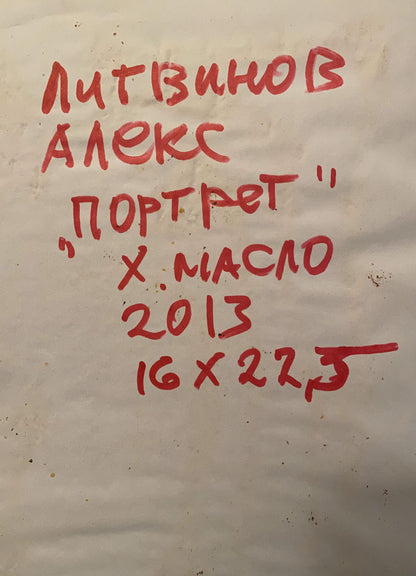 Литвинов
Алекс
"Портрет"
х. масло
2013
16 х 22,5